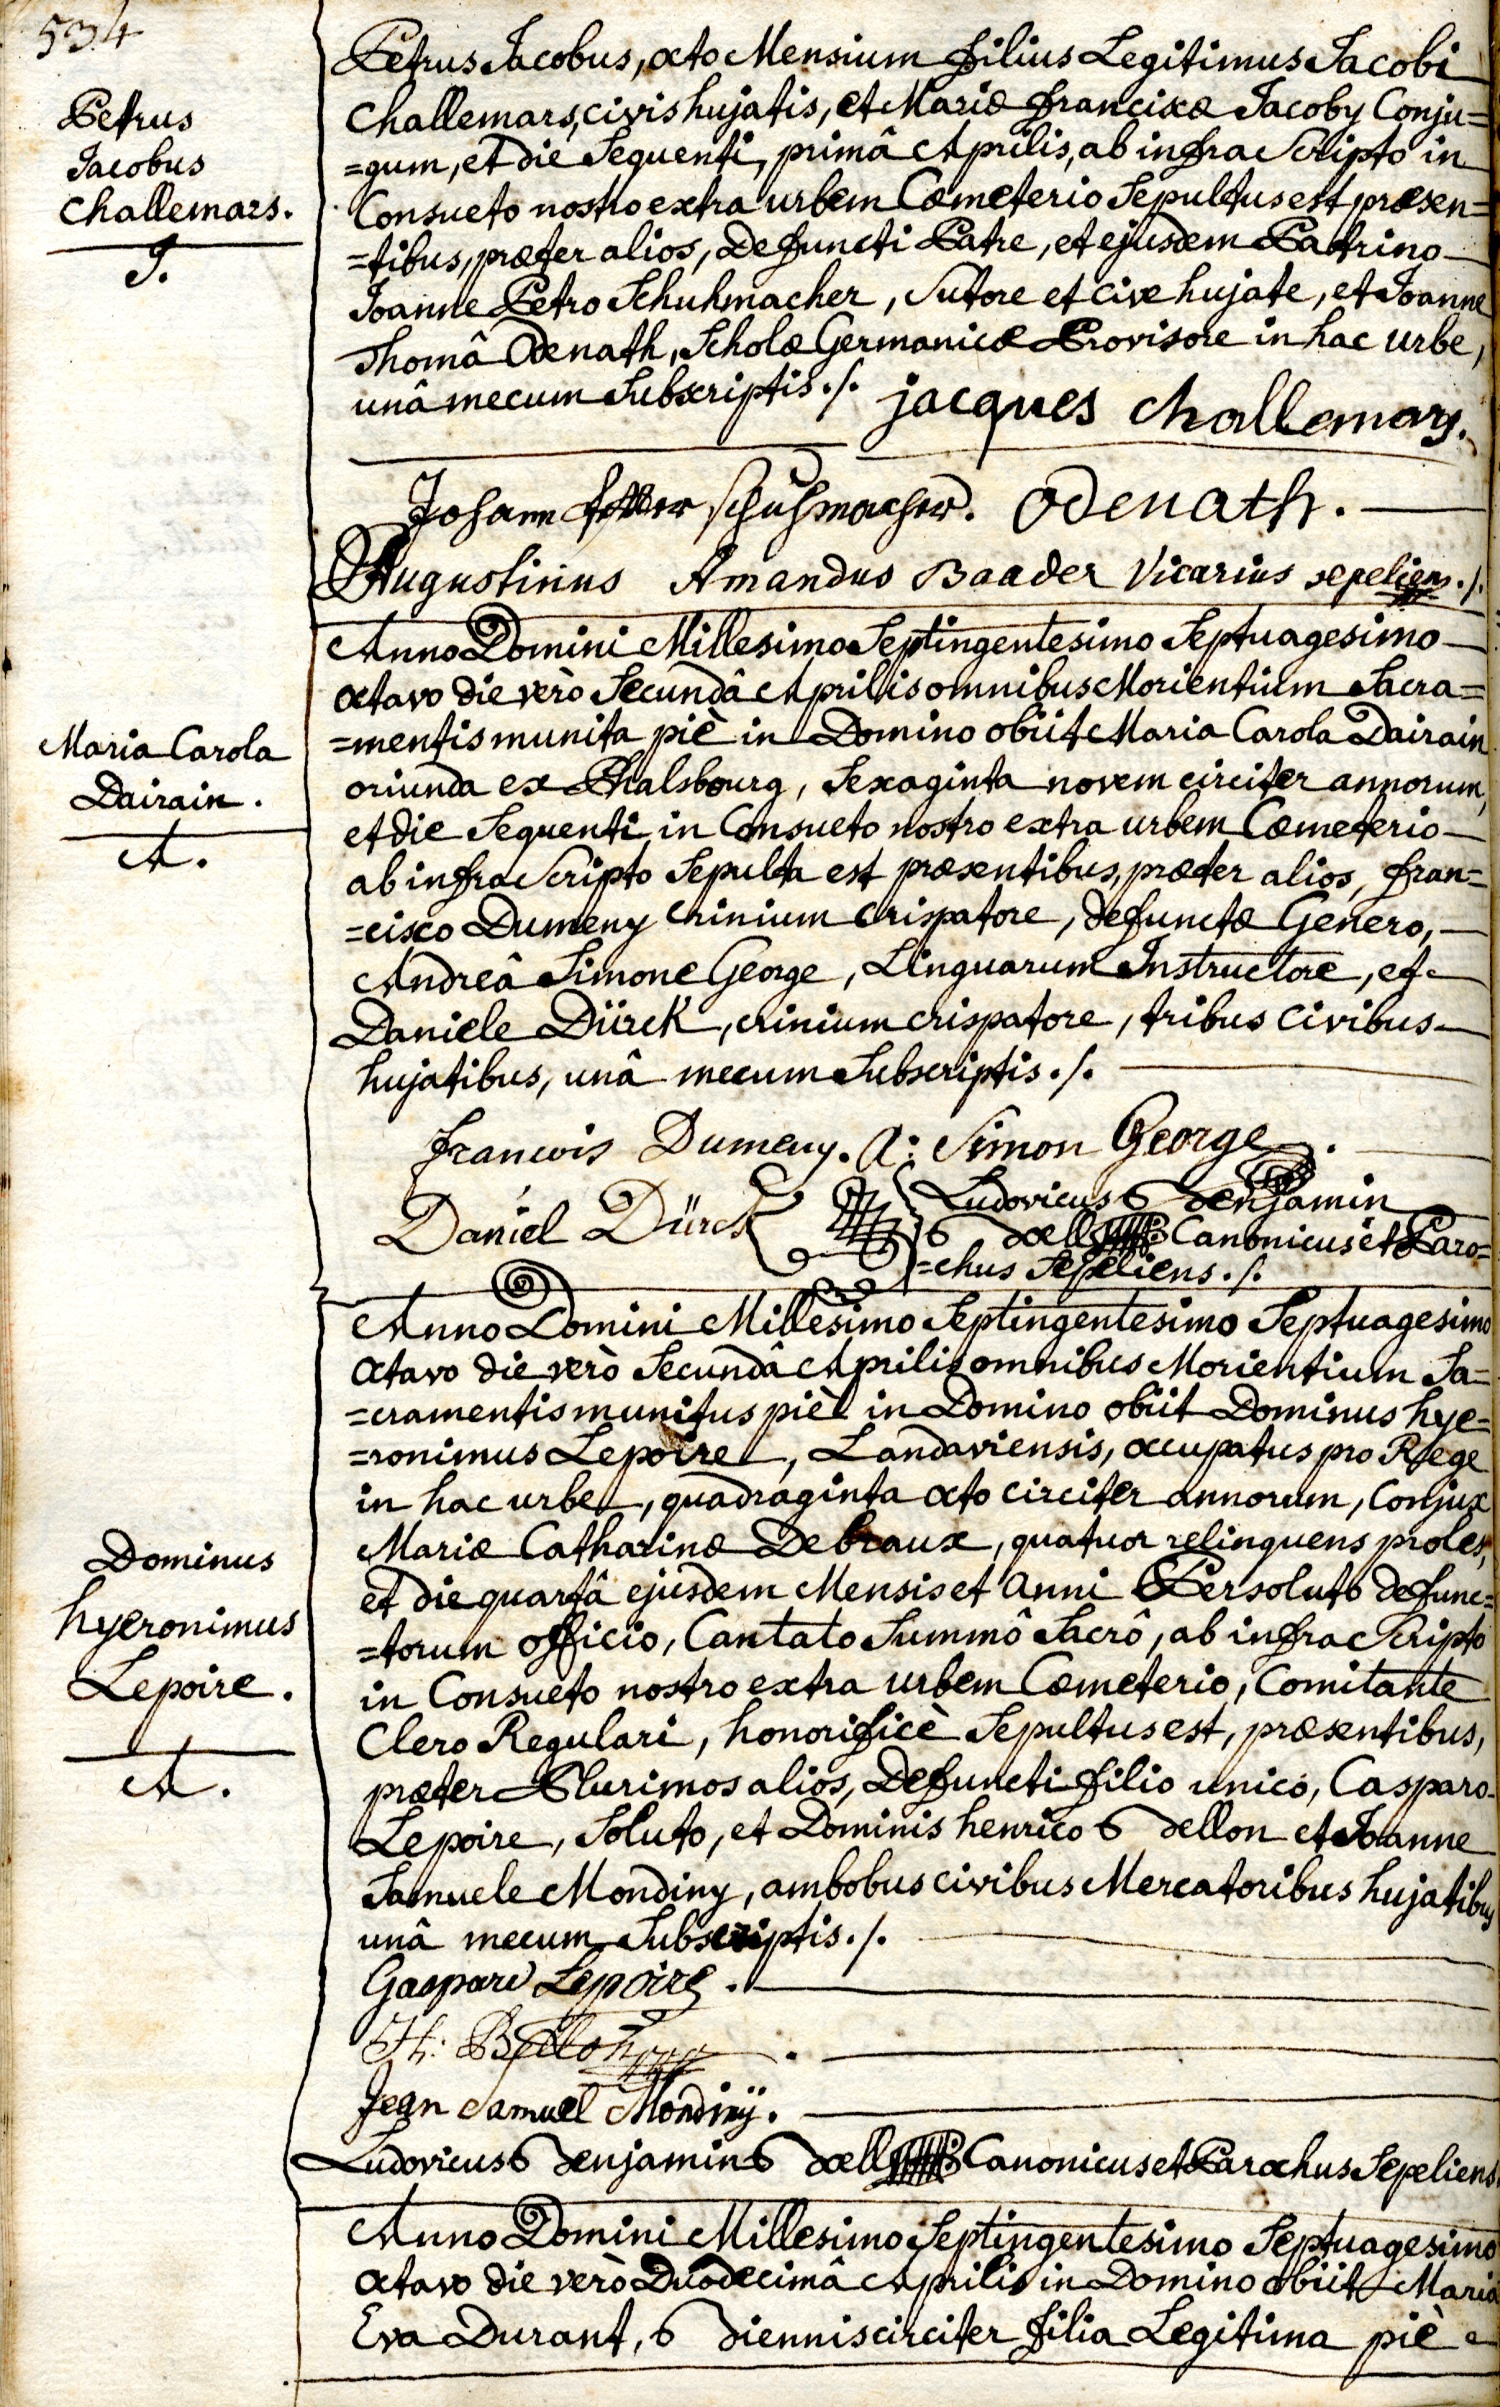 534
Petrus
Jacobus
Challemars.
J.
Petrus Jacobus, octo Mensium filius Legitimus Jacobi
Challemars, civis hujatis, et Mariæ franciscæ Jacoby Conju=
=gum, et die Sequenti, primâ Aprilis, ab infra Scripto in
Consueto nostro extra urbem Cœmeterio Sepultus est præsen=
=tibus, præter alios, Defuncti Patre, et ejusdem Patrino
Joanne Petro Schuhmacher, Sutore et cive hujate, et Joanne
Thomâ Odenath, Scholæ Germanicæ Provisore in hac urbe,
unâ mecum Subscriptis ./.
jacques challemars.
Johann Schuhmacher. Odenath.
Augustinus Amandus Baader Vicarius sepeliens ./.
Maria Carola
Dairain.
A.
Anno Domini Millesimo Septingentesimo Septuagesimo
octavo die verò Secundâ Aprilis omnibus Morientium Sacra=
=mentis munita piè in Domino obiit Maria Carola Dairain
oriunda ex Phalsbourg, Sexaginta novem circiter annorum,
et die Sequenti in Consueto nostro extra urbem Cœmeterio
ab infra Scripto Sepulta est præsentibus, præter alios, fran=
=cisco Dumeny crinium crispatore, defunctæ Genero,
Andreâ Simone George, Linguarum Instructore, et
Daniele Dürck, crinium crispatore, tribus Civibus
hujatibus, unâ mecum Subscriptis ./.
francois Dumeny. A: Simon George.
Daniel Dürck
Ludovicus Benjamin
Boell Canonicus et Paro=
=chus Sepeliens ./.
Dominus
hyeronimus
Lepoire.
A.
Anno Domini Millesimo Septingentesimo Septuagesimo
octavo die verò Secundâ Aprilis omnibus Morientium Sa=
=cramentis munitus piè in Domino obiit Dominus hye=
=ronimus Lepoire, Landaviensis, occupatus pro Rege
in hac urbe, quadraginta octo circiter annorum, Conjux
Mariæ Catharinæ Debraux, quatuor relinquens proles,
et die quartâ ejusdem Mensis et Anni Persoluto defunc=
=torum officio, Cantato Summô Sacrô, ab infra Scripto
in Consueto nostro extra urbem Cœmeterio, Comitante
Clero Regulari, honorificè Sepultus est, præsentibus,
præter Plurimos alios, Defuncti filio unico, Casparo
Lepoire, Soluto, et Dominis henrico Bellon et Joanne
Samuele Mondiny, ambobus civibus Mercatoribus hujatibus
unâ mecum Subscriptis ./.
Gaspard Lepoire.
H: Bellon.
Jean Samuel Mondinÿ.
Ludovicus Benjamin Boell Canonicus et Parochus Sepeliens
Anno Domini Millesimo Septingentesimo Septuagesimo
octavo die verò Duodecimâ Aprilis in Domino obiit Maria
Eva Durant, Biennis circiter filia Legitima piè